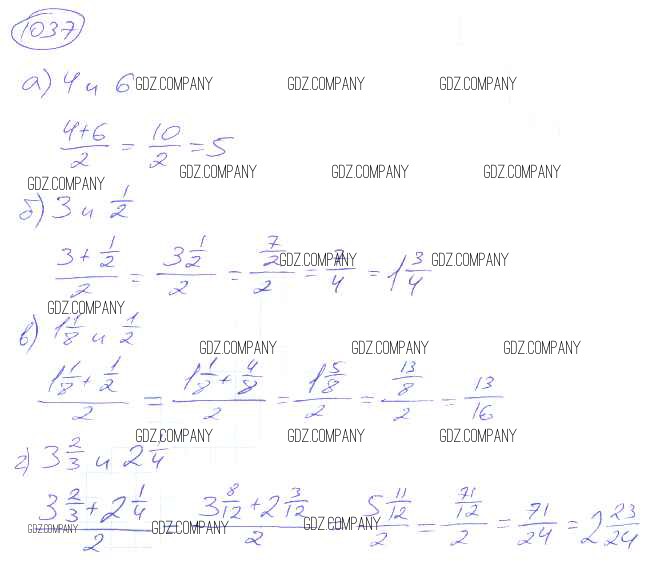 1037
а) 4 и 6 GDZ.COMPANY GDZ.COMPANY GDZ.COMPANY
(4+6)/2 = 10/2 = 5
GDZ.COMPANY GDZ.COMPANY GDZ.COMPANY GDZ.COMPANY
б) 3 и 1/2
(3 + 1/2)/2 = (3 1/2)/2 = (7/2)/2 = 7/4 = 1 3/4 GDZ.COMPANY GDZ.COMPANY
GDZ.COMPANY
в) 1 1/8 и 1/2
GDZ.COMPANY GDZ.COMPANY GDZ.COMPANY
(1 1/8 + 1/2)/2 = (1 1/8 + 4/8)/2 = (1 5/8)/2 = (13/8)/2 = 13/16
GDZ.COMPANY GDZ.COMPANY GDZ.COMPANY
г) 3 2/3 и 2 1/4
(3 2/3 + 2 1/4)/2 = (3 8/12 + 2 3/12)/2 = (5 11/12)/2 = (71/12)/2 = 71/24 = 2 23/24
GDZ.COMPANY GDZ.COMPANY GDZ.COMPANY